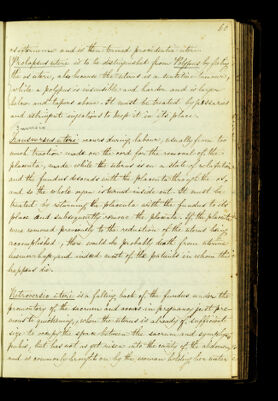 60
os externum and is then termed procidentia uteri
Prolapsus uteri is to be distinguished from Polypus by feeling
the os uteri, also because the uterus is a sensitive tumour,
while a polypus is insensible and harder and is larger
below and tapers above. It must be treated by pessaries
and astringent injections to keep it in its place.
Inversio uteri occurs during labour, usually from too
much traction made on the cord for the removal of the
placenta, made while the uterus is in a state of relaxation
and the fundus descends with the placenta through the os,
and so the whole organ is turned inside out. It must be
treated by returning the placenta with the fundus to its
place and subsequently remove the placenta. If the placenta
were removed previously to the reduction of the uterus being
accomplished, there would be probably death from uterine
hemorrhage, and indeed most of the patients in whom this
happens die.
Retroversio uteri is a falling back of the fundus under the
promontory of the sacrum and occurs in pregnancy just pre-
vious to quickening, when the uterus is already of sufficient
size to occupy the space between the sacrum and symphysis
pubis, but has not as yet risen into the cavity of the abdomen
and is commonly brought on by the woman holding her water